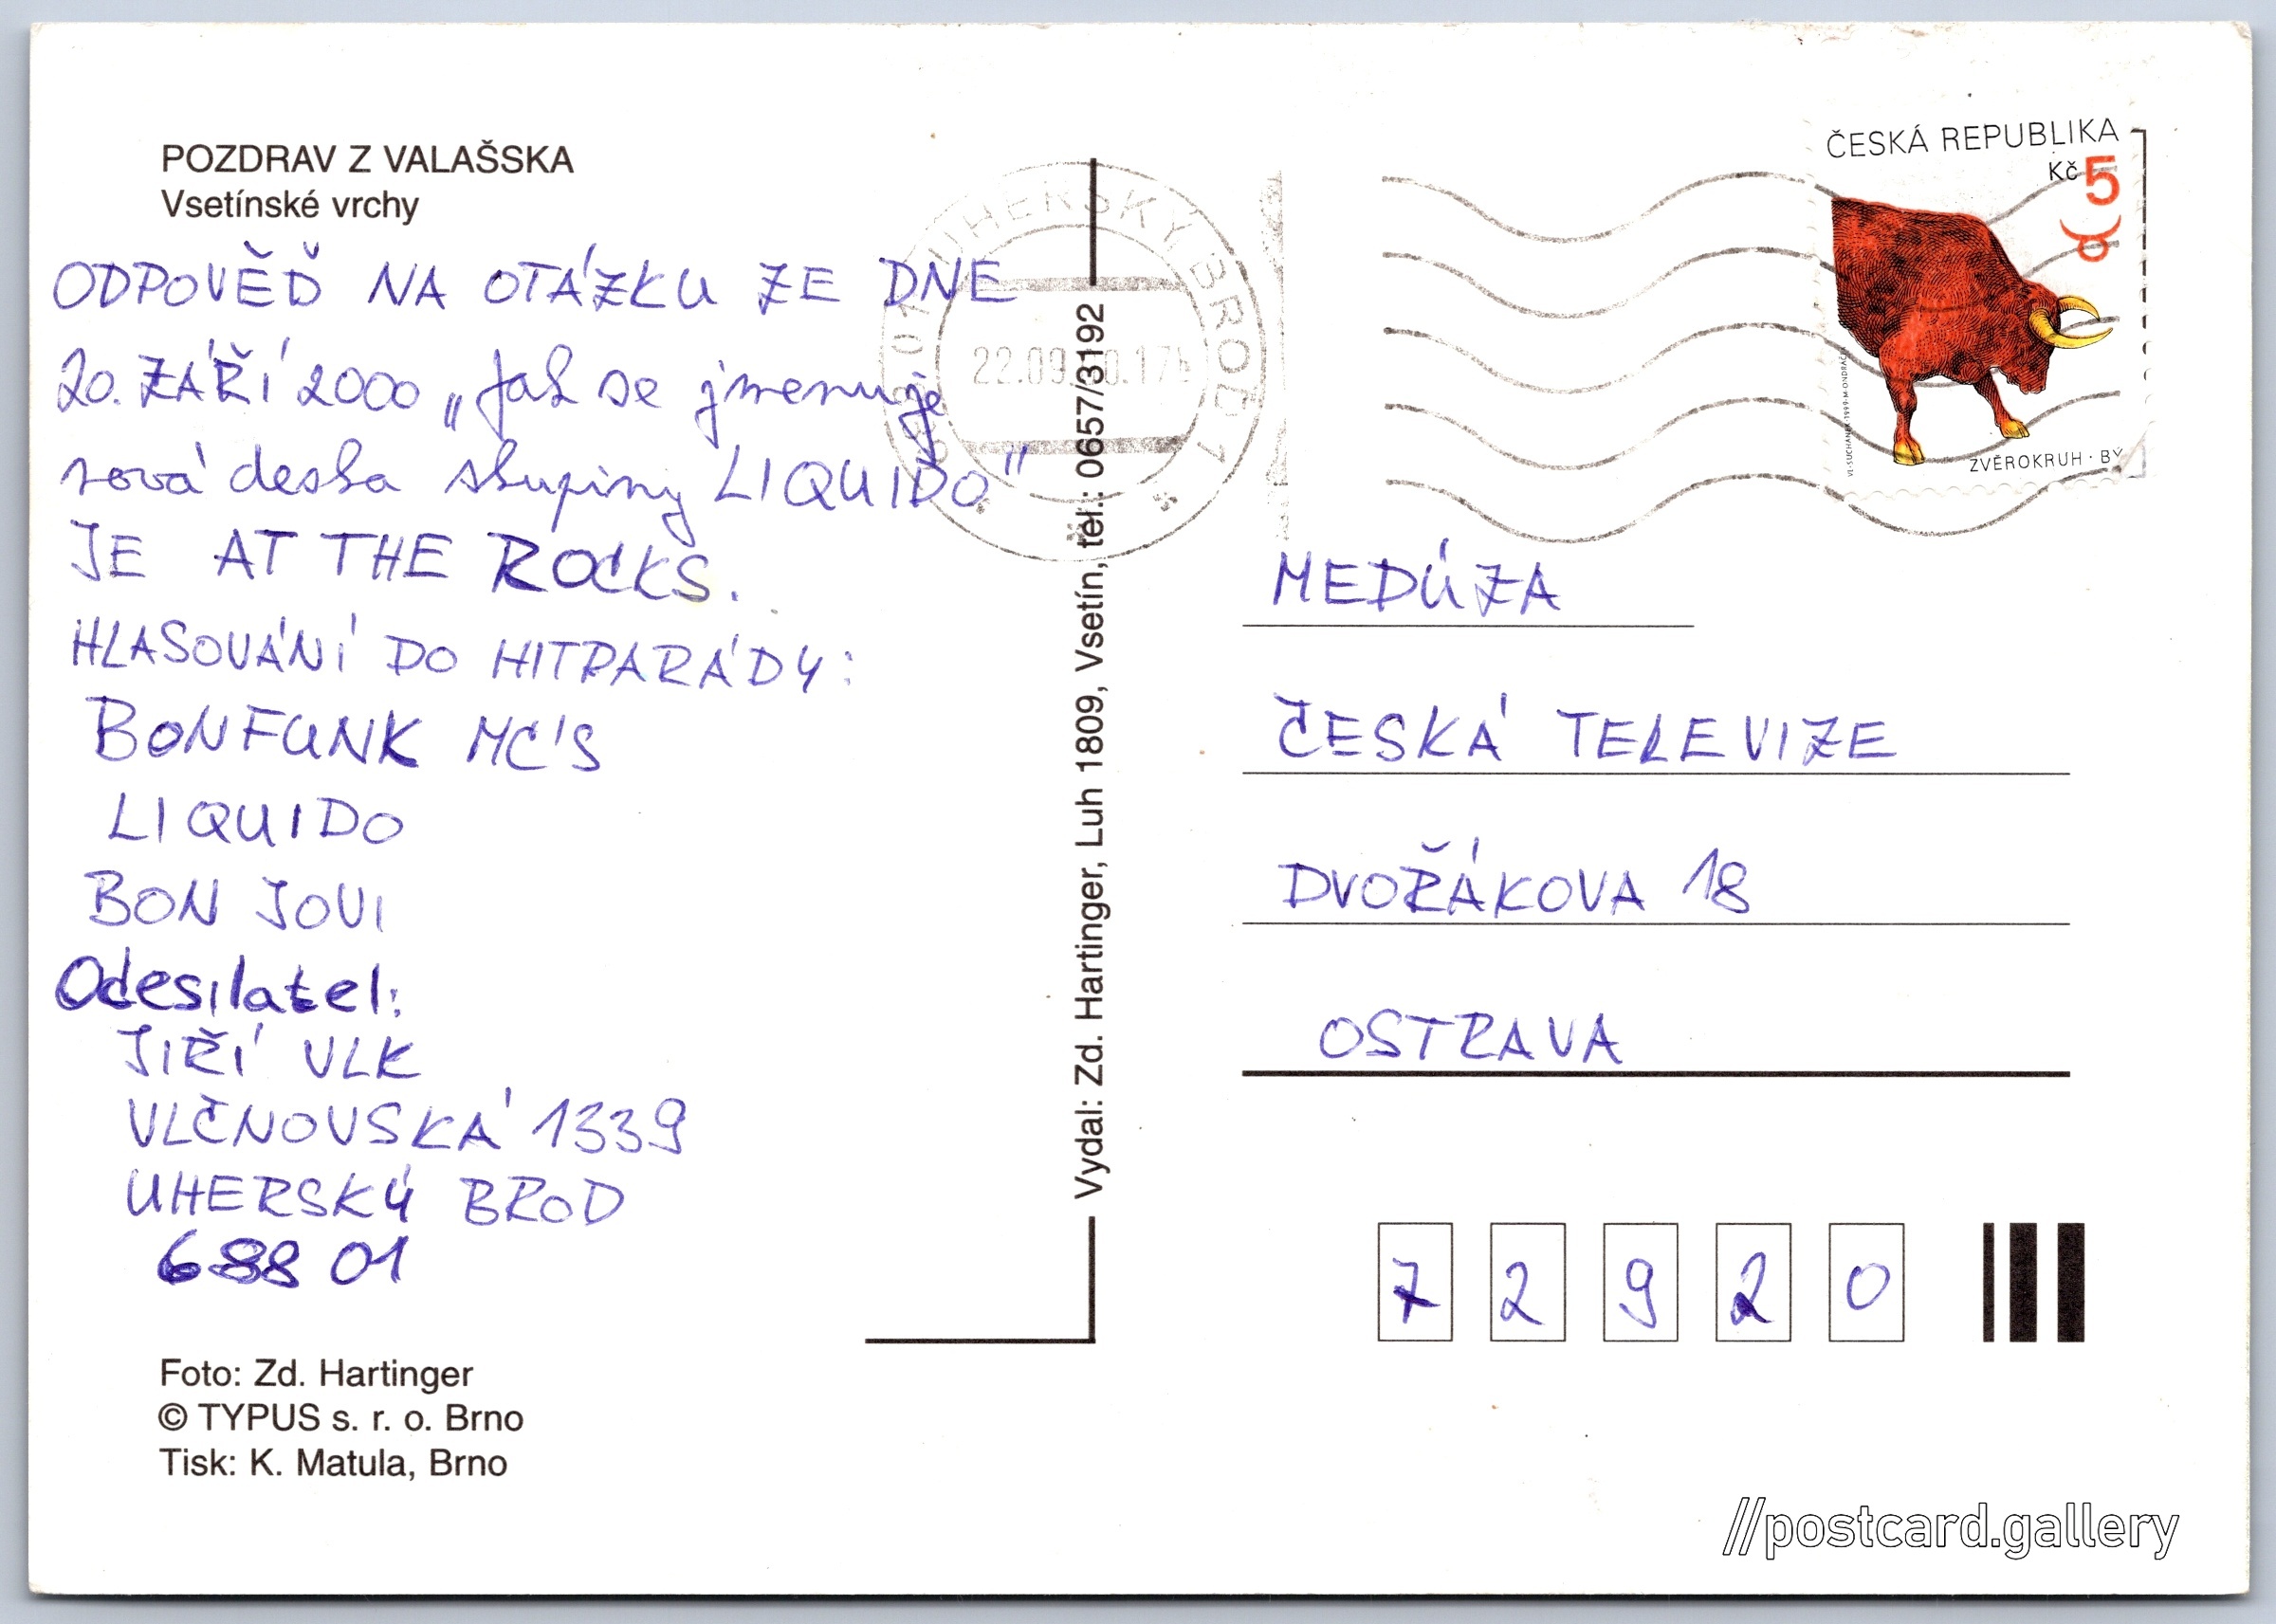 POZDRAV Z VALAŠSKA
Vsetínské vrchy
ODPOVĚĎ NA OTÁZKU ZE DNE
20. ZÁŘÍ 2000 „Jak se jmenuje
nová deska skupiny LIQUIDO"
JE AT THE ROCKS.
HLASOVÁNÍ DO HITPARÁDY:
BONFUNK MC'S
LIQUIDO
BON JOVI
Odesilatel:
JIŘÍ VLK
VLČNOVSKÁ 1339
UHERSKÝ BROD
688 01
Foto: Zd. Hartinger
© TYPUS s. r. o. Brno
Tisk: K. Matula, Brno
Vydal: Zd. Hartinger, Luh 1809, Vsetín, tel.: 0657/3192
UHERSKÝ BROD 1
22.09.
ČESKÁ REPUBLIKA
Kč 5
ZVĚROKRUH · BÝ
MEDÚZA
ČESKÁ TELEVIZE
DVOŘÁKOVA 18
OSTRAVA
7 2 9 2 0
//postcard.gallery